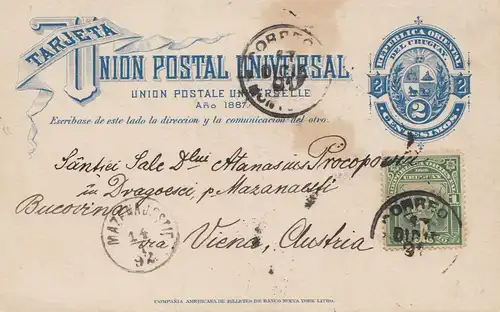 TARJETA
UNION POSTAL UNIVERSAL
UNION POSTALE UNIVERSELLE
Año 1887
Escribase de este lado la direccion y la comunicacion del otro.
REPUBLICA ORIENTAL
DEL URUGUAY
2 2
2
CENTESIMOS
CORREO
27
DIC
91
Sântiei Sale Dlui Atanasius Procopovici
in Dragoesci, p. Mazanaesti
Bucovina
via Viena, Austria
CORREO
27
DIC
91
14
92
COMPAÑIA AMERICANA DE BILLETES DE BANCO NUEVA YORK LITHO.